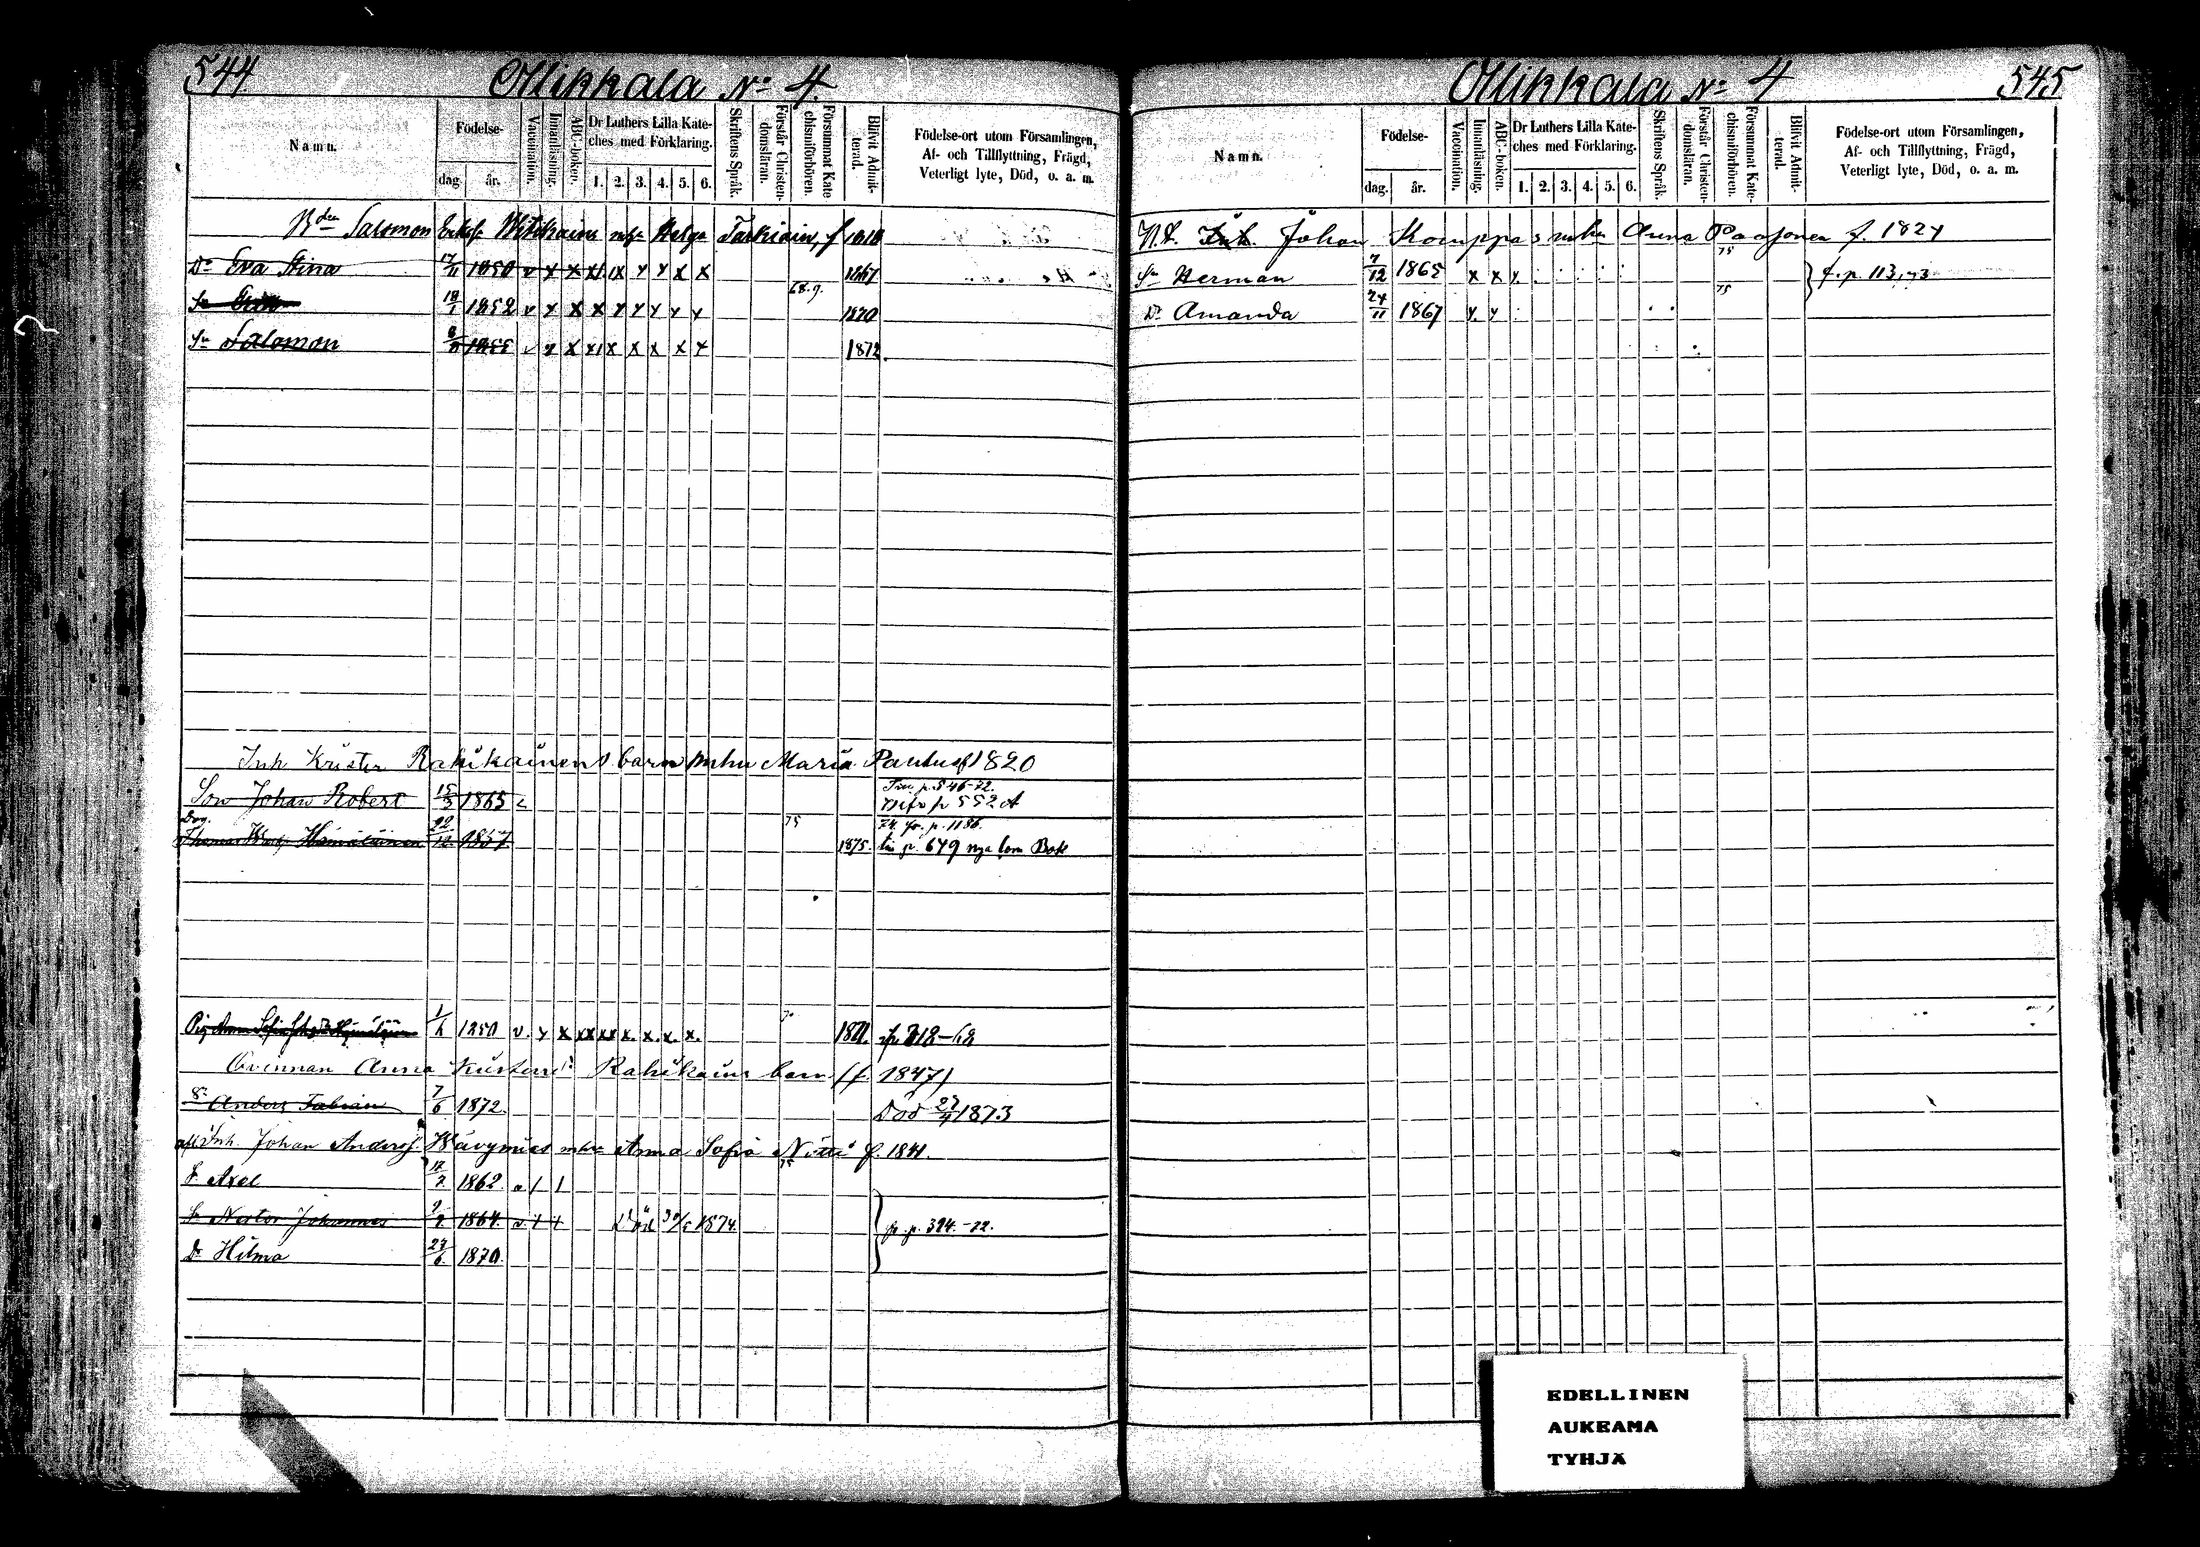 544
Ollikkala No 4.
Namn.
Födelse-
dag.
år.
Vaccination.
Innanläsning.
ABC-boken.
Dr Luthers Lilla Kate-
ches med Förklaring.
1. 2. 3. 4. 5. 6.
Skriftens Språk.
Förstår Christen-
domsläran.
Försummat Kate
chismiförhören.
Blifvit Admit-
terad.
Födelse-ort utom Församlingen,
Af- och Tillflyttning, Frägd,
Veterligt lyte, Död, o. a. m.
Bden Salomon Eriksf. Witikains Helga Tarkiain, f 1818
Dr Eva Stina 17/11 1850 v x x x x x x x x 1867
68.9.
Sn 18/1 1852 v x x x x x x x x 1870
Sn Salomon 1855 v x x x x x x x x 1872
Inh Krister Rahikainens barn mhu Maria Paulus f 1820
Son Johan Robert 15/3 1865
Inu. p. 546-72.
p 552 A
Dug. Thomas Hämäläinen 22/12 1857
75
74. fr. p. 1186.
1875. till p. 649 nya kom Bok
Pig Anna Sofia 1850 v. x x x x x. x. x. x. 1871.
Qvinnan Anna Kristersdr Rahikains barn (f. 1847)
Sn Anders Fabian 7/6 1872.
Död 27/4 1873
Inh. Johan Andersf. Wävynies mhu Anna Sofia f. 1841.
S. Axel 1862.
S. Nestor Johannes 1864. Död 30/5 1874.
fr. p. 324.-72.
Dr Hilma 27/6. 1870.
Ollikkala No 4
545
Namn.
Födelse-
dag.
år.
Vaccination.
Innanläsning.
ABC-boken.
Dr Luthers Lilla Kate-
ches med Förklaring.
1. 2. 3. 4. 5. 6.
Skriftens Språk.
Förstår Christen-
domsläran.
Försummat Kate-
chismiförhören.
Blifvit Admit-
terad.
Födelse-ort utom Församlingen,
Af- och Tillflyttning, Frägd,
Veterligt lyte, Död, o. a. m.
Inh. Johan Komppas mhu Anna Paajonen f. 1824
Sn Herman 7/12 1865 x x x
75
f. p. 113,73
Dr Amanda 24/11 1867 x x
75
EDELLINEN
AUKEAMA
TYHJÄ